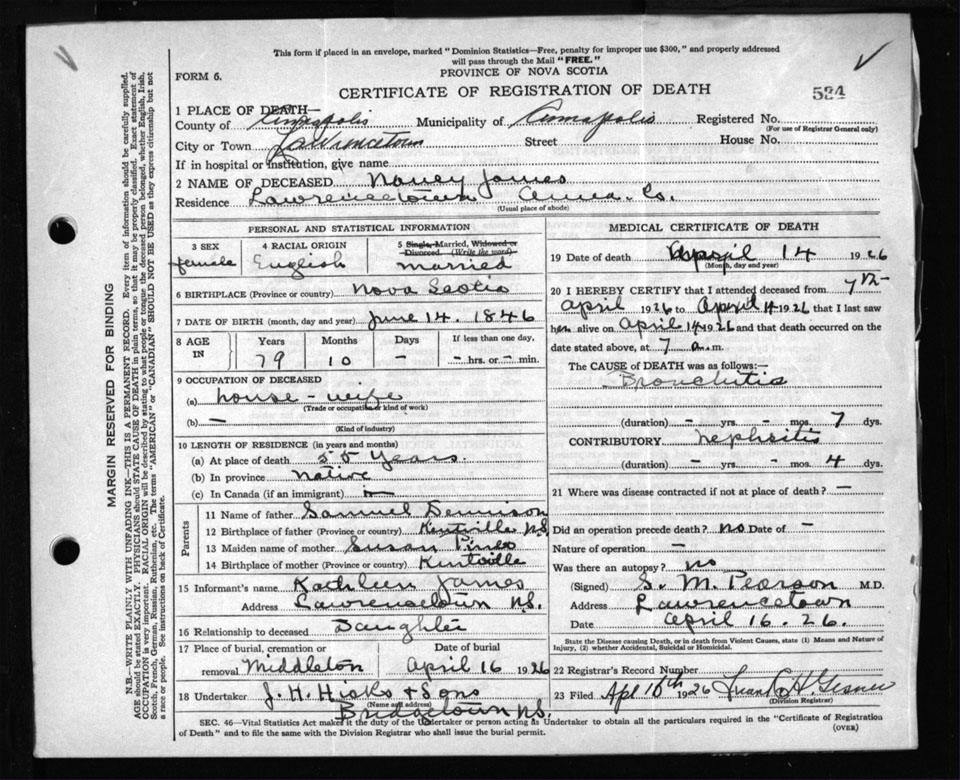 This form if placed in an envelope, marked "Dominion Statistics—Free, penalty for improper use $300," and properly addressed
will pass through the Mail "FREE."
FORM 6.
PROVINCE OF NOVA SCOTIA
CERTIFICATE OF REGISTRATION OF DEATH
524
1 PLACE OF DEATH—
County of Annapolis Municipality of Annapolis Registered No.
(For use of Registrar General only)
City or Town Lawrencetown Street House No.
If in hospital or institution, give name
2 NAME OF DECEASED Nancy James
Residence Lawrencetown Anna. Co.
(Usual place of abode)
PERSONAL AND STATISTICAL INFORMATION
3 SEX
female
4 RACIAL ORIGIN
English
5 Single, Married, Widowed or
Divorced. (Write the word)
married
6 BIRTHPLACE (Province or country) Nova Scotia
7 DATE OF BIRTH (month, day and year) June 14. 1846
8 AGE IN
Years Months Days If less than one day,
79 10 – – hrs. or – min.
9 OCCUPATION OF DECEASED
(a) house-wife
(Trade or occupation or kind of work)
(b) —
(Kind of industry)
10 LENGTH OF RESIDENCE (in years and months)
(a) At place of death 55 years.
(b) In province native
(c) In Canada (if an immigrant) –
Parents
11 Name of father Samuel Dennison
12 Birthplace of father (Province or country) Kentville N.S.
13 Maiden name of mother Susan Pineo
14 Birthplace of mother (Province or country) Kentville
15 Informant's name Kathleen James
Address Lawrencetown N.S.
16 Relationship to deceased Daughter
17 Place of burial, cremation or Date of burial
removal Middleton April 16 1926
18 Undertaker J. H. Hicks & Sons
(Name and address)
Bridgetown N.S.
MEDICAL CERTIFICATE OF DEATH
19 Date of death April 14 1926
(Month, day and year)
20 I HEREBY CERTIFY that I attended deceased from 7th
April 1926 to April 14 1926 that I last saw
her alive on April 14 1926 and that death occurred on the
date stated above, at 7 a.m.
The CAUSE of DEATH was as follows:—
Bronchitis
(duration) – yrs. – mos. 7 dys.
CONTRIBUTORY nephritis
(duration) – yrs. – mos. 4 dys.
21 Where was disease contracted if not at place of death? –
Did an operation precede death? no Date of –
Nature of operation –
Was there an autopsy? no
(Signed) S. M. Pearson M.D.
Address Lawrencetown
Date April 16. 26.
State the Disease causing Death, or in death from Violent Causes, state (1) Means and Nature of
Injury, (2) whether Accidental, Suicidal or Homicidal.
22 Registrar's Record Number
23 Filed Apl 16th 1926 Gesner
(Division Registrar)
SEC. 46—Vital Statistics Act makes it the duty of the Undertaker or person acting as Undertaker to obtain all the particulars required in the "Certificate of Registration
of Death" and to file the same with the Division Registrar who shall issue the burial permit. (OVER)
MARGIN RESERVED FOR BINDING
N.B.—WRITE PLAINLY WITH UNFADING INK—THIS IS A PERMANENT RECORD. Every item of information should be carefully supplied.
AGE should be stated EXACTLY. PHYSICIANS should STATE CAUSE OF DEATH in plain terms, so that it may be properly classified. Exact statement of
OCCUPATION is very important. RACIAL ORIGIN will be described by stating to what people or tongue the deceased person belonged, whether English, Irish,
Scotch, French, German, Russian, Ruthenian, etc. The terms "AMERICAN" or "CANADIAN" SHOULD NOT BE USED as they express citizenship but not
a race or people. See instructions on back of Certificate.